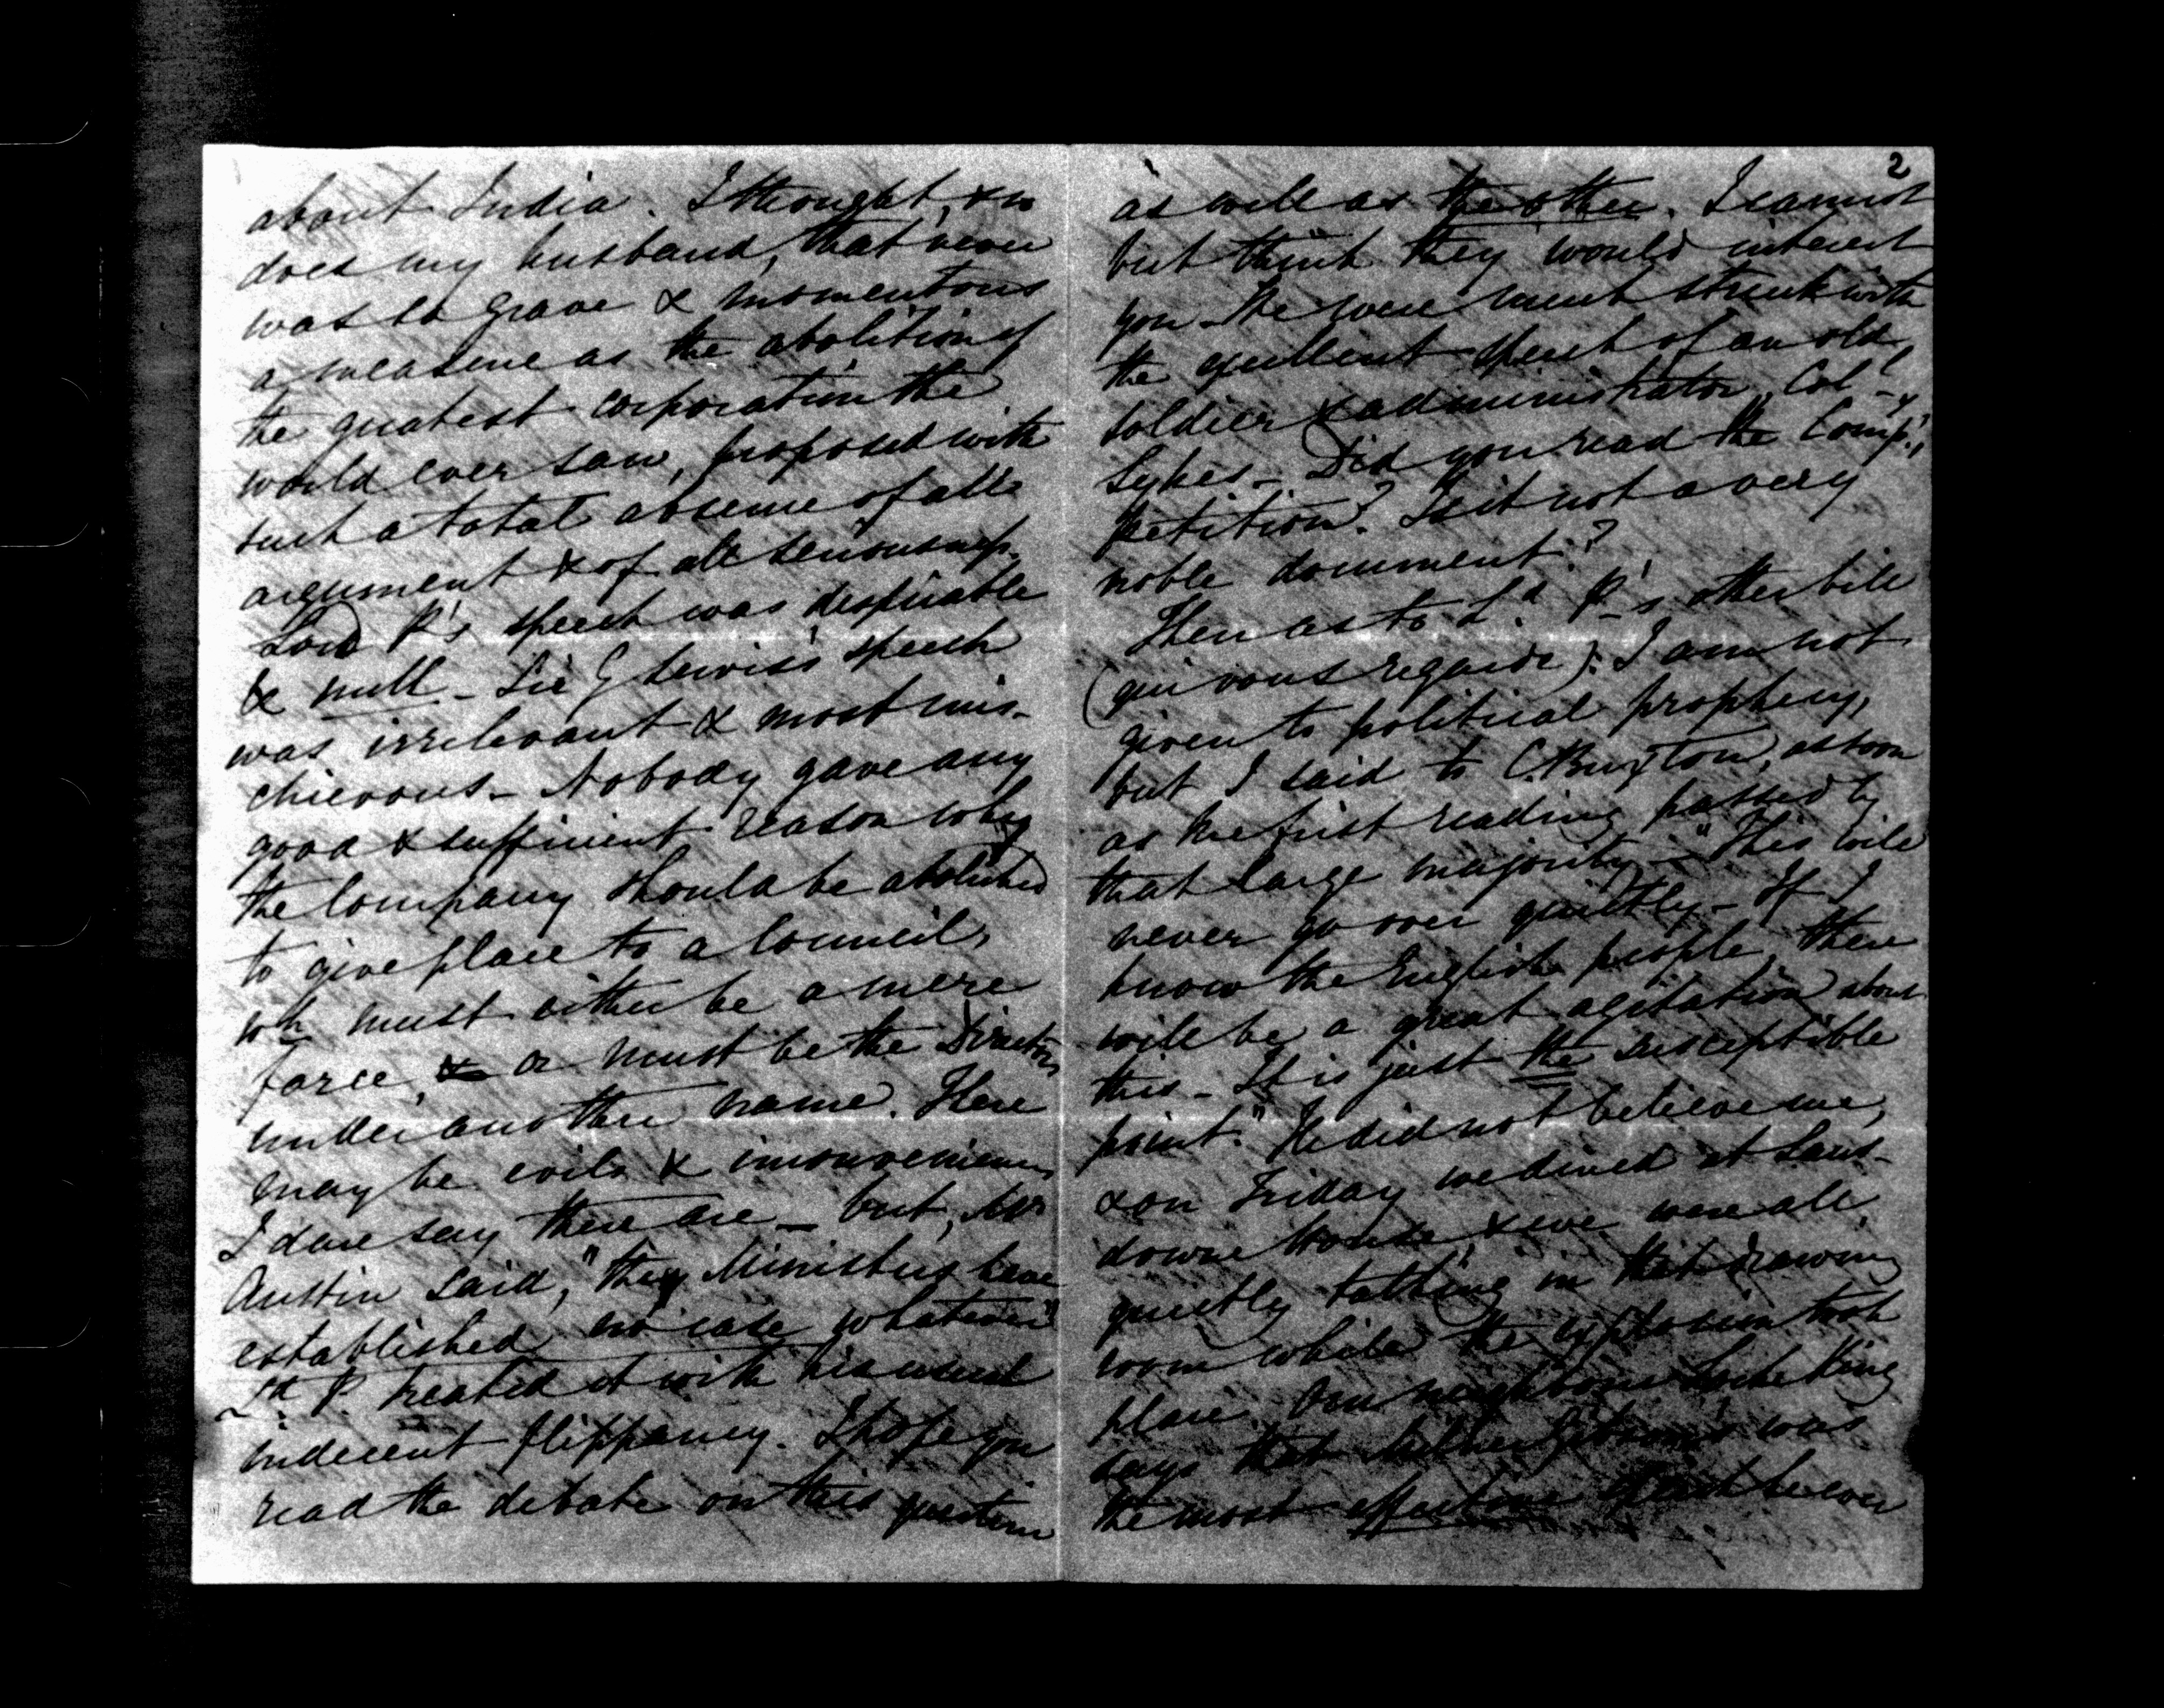 about India. I thought, & so
does my husband, that never
was so grave & momentous
a measure as the abolition of
the greatest corporation the
world ever saw, proposed with
such a total absence of all
argument & of all seriousness.
Lord P's speech was despicable
& null - Sir G Lewis's speech
was irrelevant & most mis-
chievous - Nobody gave any
good & sufficient reason why
the Company should be abolished
to give place to a Council,
wh must either be a mere
farce, or must be the Directors
under another name. There
may be evils & inconveniences
I dare say there are - but, Mr
Austin said, "they Ministers have
established no case whatever"
Ld P. treated it with his usual
indecent flippancy. I hope you
read the debate on this question
2
as well as the other. I cannot
but think they would interest
you - We were much struck with
the excellent speech of an old
soldier & administrator, Col-l
Sykes - Did you read the Compy's
petition? Is it not a very
noble document?
Then as to Ld P's other bill
(qui vous regarde): I am not
given to political prophecy,
but I said to C. Buxton, as soon
as the first reading passed by
that large majority - "This will
never go over quietly - If I
know the English people, there
will be a great agitation about
this - It is just the susceptible
point." He did not believe me,
& on Friday we dined at Lans-
downe House, & we were all
quietly talking in that drawing
room while the explosion took
place. Our neighbour Locke King
says that Milner Gibson's was
the most effective speech he ever